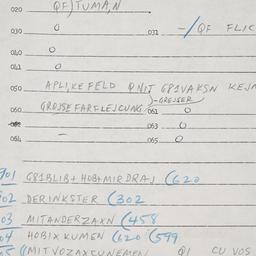 020 QF)TUMA,N
030 O 031 -/QF FLIC
040 O
041 O
050 APLIKEFELD QNIT G81VAKSN KEJN
060 GROJSE FARFLEJCUNG 061 )-GREJSER O
063 O
064 - 065 O
701 G81BLIB+HOB+MIR DRAJ (620
702 DERINKSTER (302
03 MITANDERZAXN (458
04 HOBIX KUMEN (620 (599
05 ((MITVOZAXCUNEMEN QI CU VOS